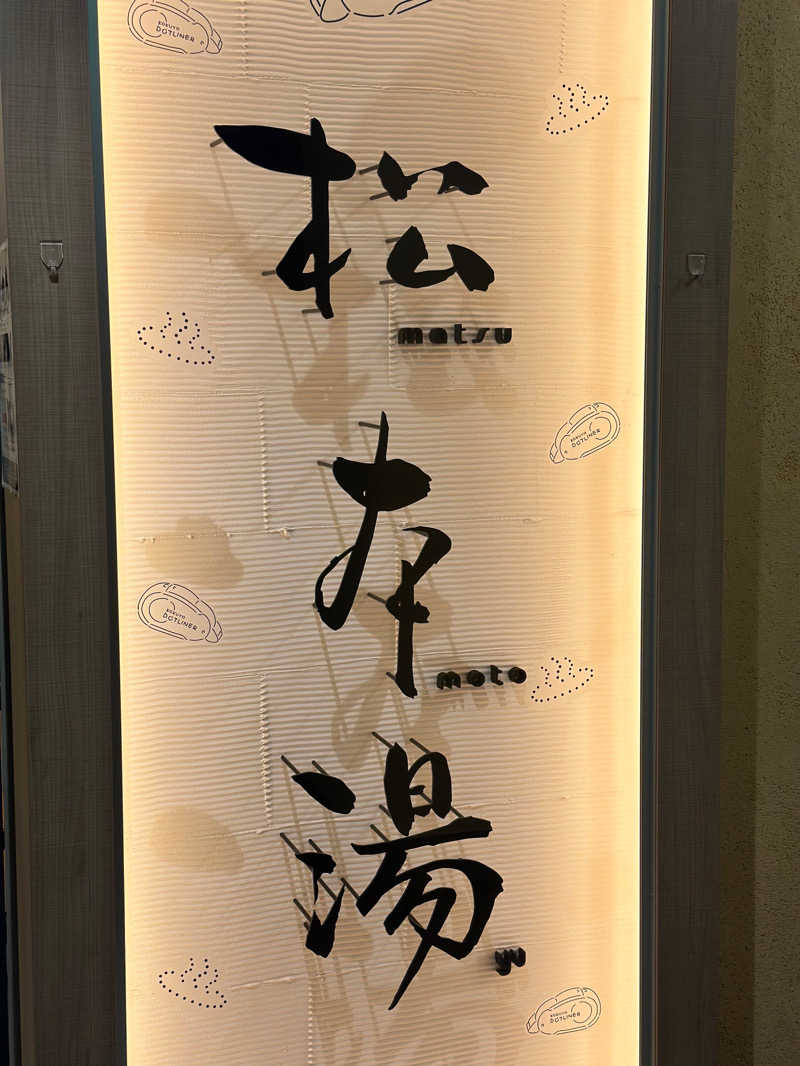 KOKUYO
DOTLINER
松
matsu
KOKUYO
DOTLINER
本
KOKUYO
DOTLINER
moto
湯
yu
KOKUYO
DOTLINER